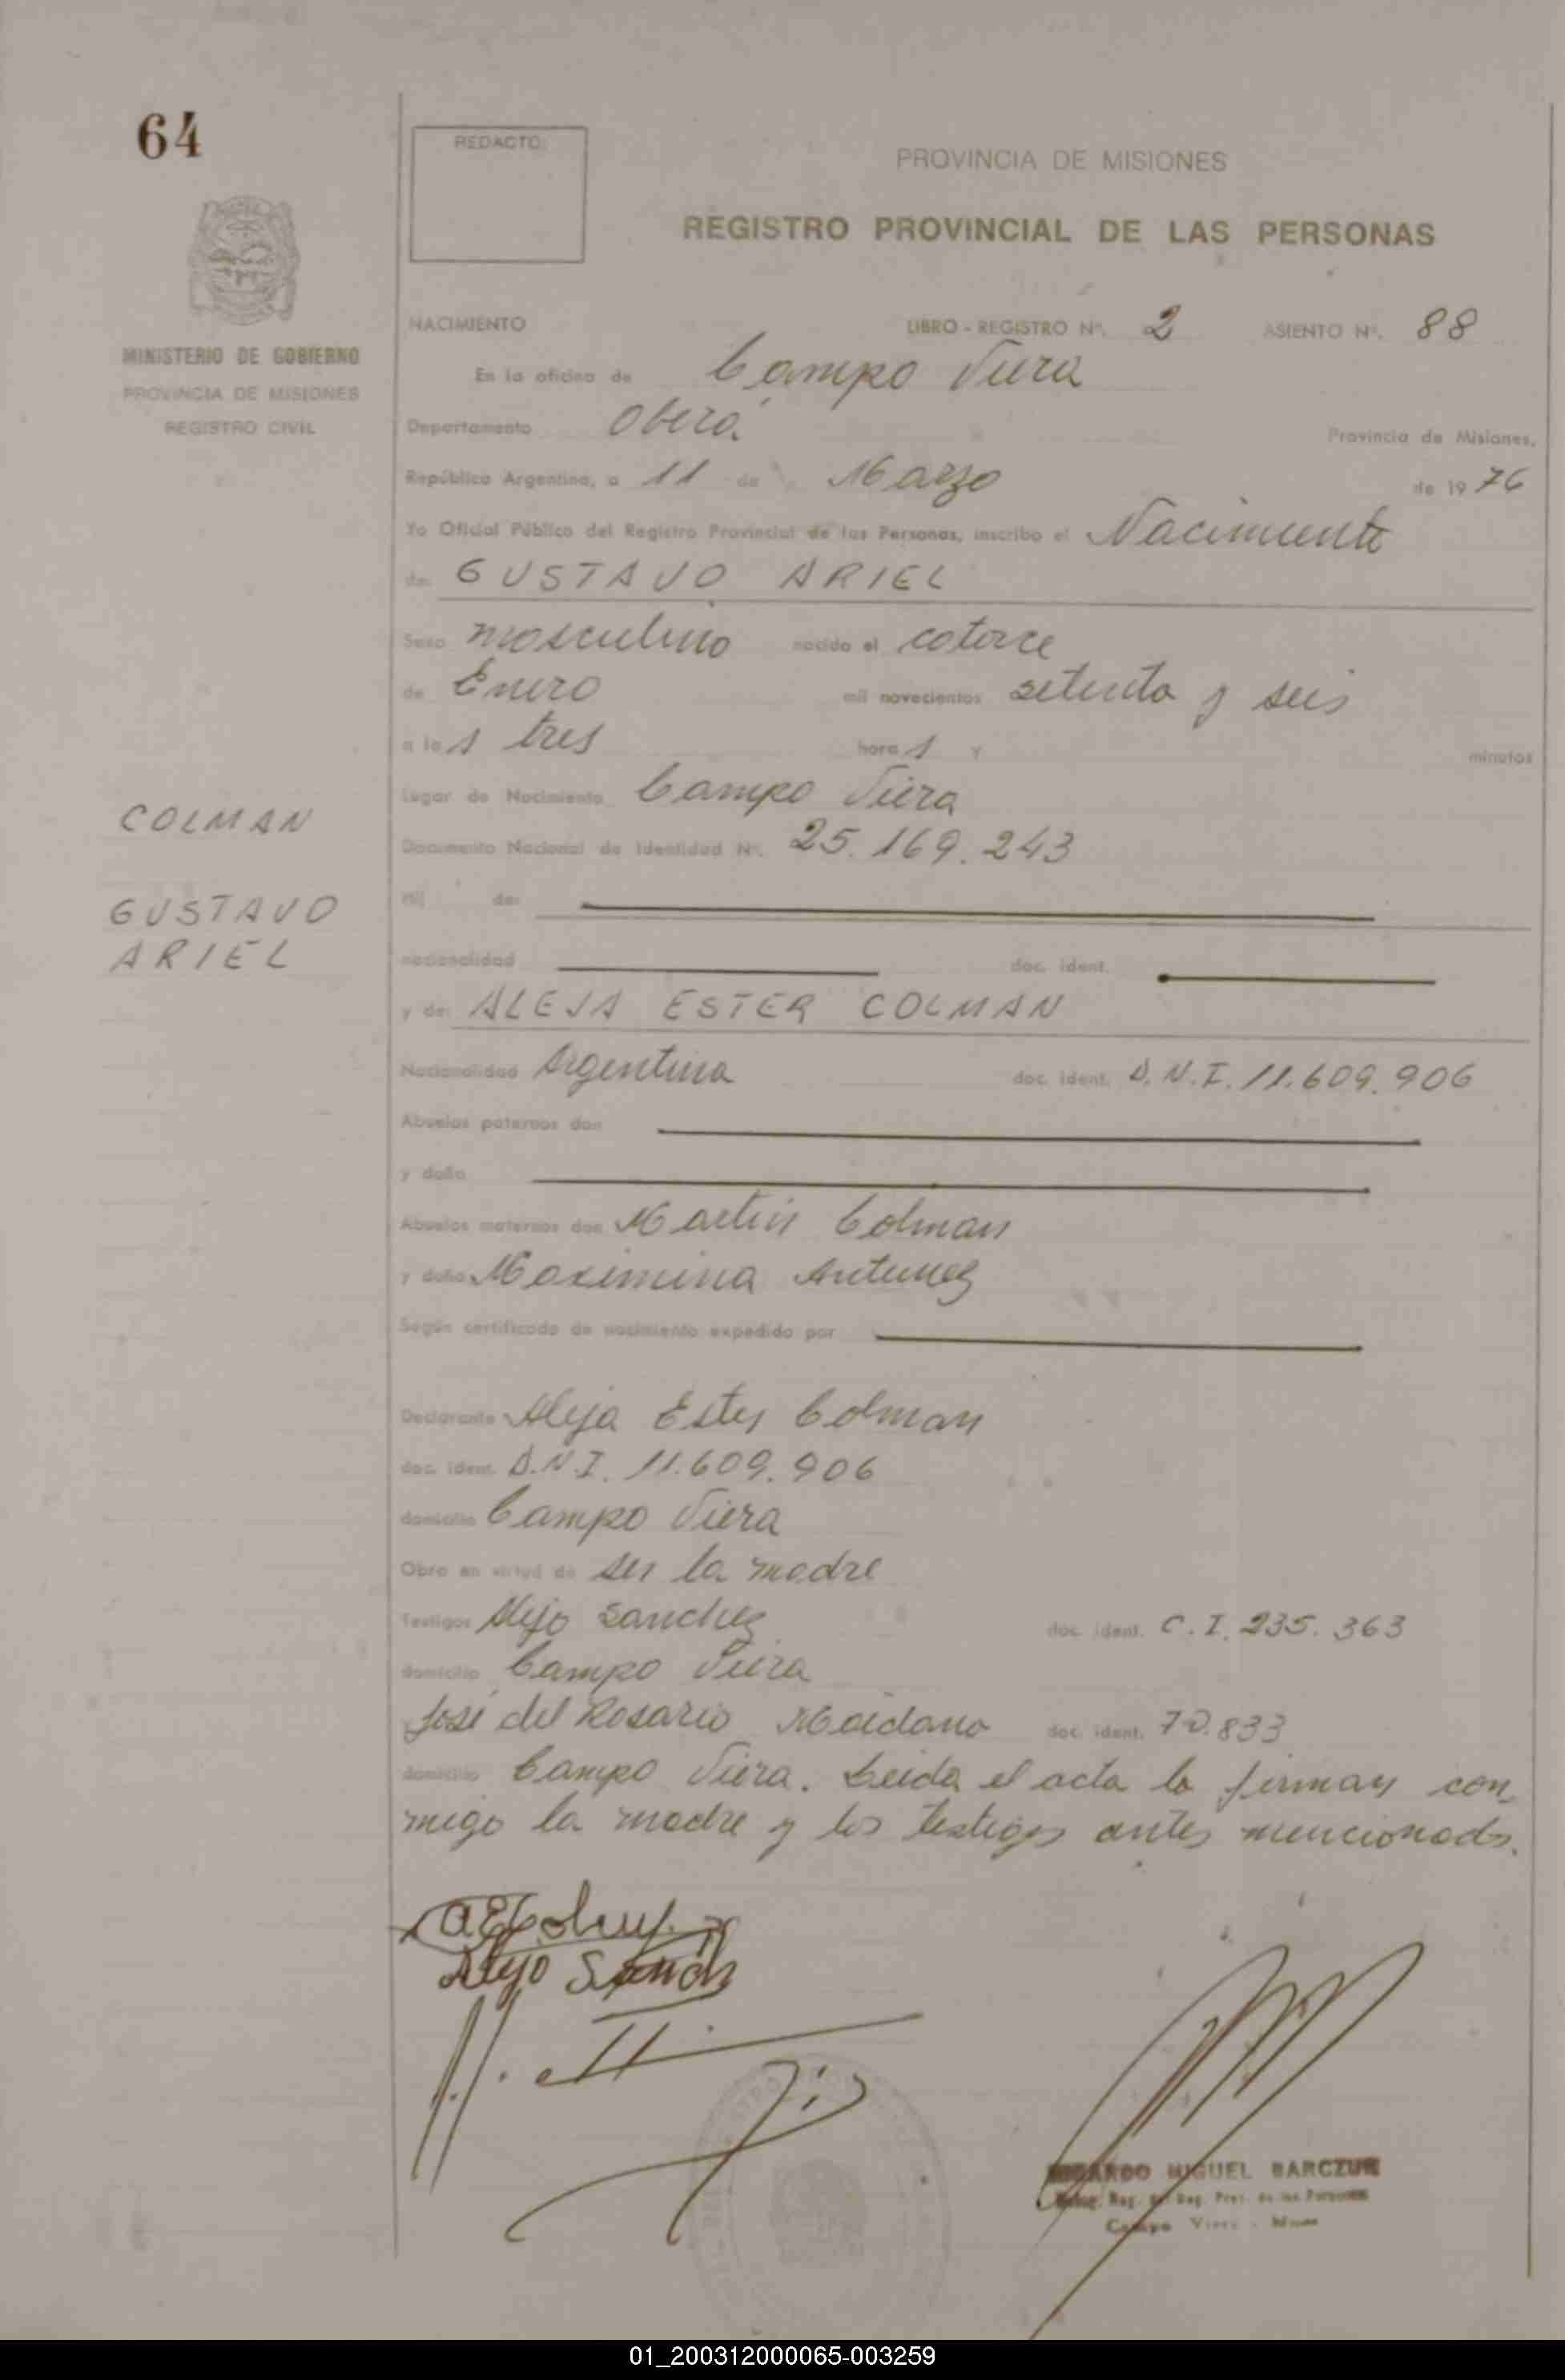 64
REDACTO:
PROVINCIA DE MISIONES
REGISTRO PROVINCIAL DE LAS PERSONAS
MINISTERIO DE GOBIERNO
PROVINCIA DE MISIONES
REGISTRO CIVIL
NACIMIENTO LIBRO - REGISTRO Nº. 2 ASIENTO Nº. 88
En la oficina de Campo Viera
Departamento Oberá Provincia de Misiones,
República Argentina, a 11 de Marzo de 1976
Yo Oficial Público del Registro Provincial de las Personas, inscribo el Nacimiento
de: GUSTAVO ARIEL
Sexo masculino nacido el catorce
de Enero mil novecientos setenta y seis
a las tres horas y minutos
Lugar de Nacimiento Campo Viera
COLMAN
GUSTAVO
ARIEL
Documento Nacional de Identidad Nº. 25.169.243
Hij de:
nacionalidad doc. ident.
y de: ALEJA ESTER COLMAN
Nacionalidad Argentina doc. ident. D.N.I. 11.609.906
Abuelos paternos don
y doña
Abuelos maternos don Martin Colman
y doña Maximina Antunez
Según certificado de nacimiento expedido por
Declarante Aleja Ester Colman
doc. ident. D.N.I. 11.609.906
domicilio Campo Viera
Obra en virtud de ser la madre
Testigos Alejo Sanchez doc. ident. C.I. 235.363
domicilio Campo Viera
José del Rosario Maidana doc. ident. 70.833
domicilio Campo Viera. Leida el acta la firman con
migo la madre y los testigos antes mencionados.
Alejo Sanch
MIGUEL BARCZUK
Reg. Prov. de las Personas
Campo Viera - Mnes
01_200312000065-003259